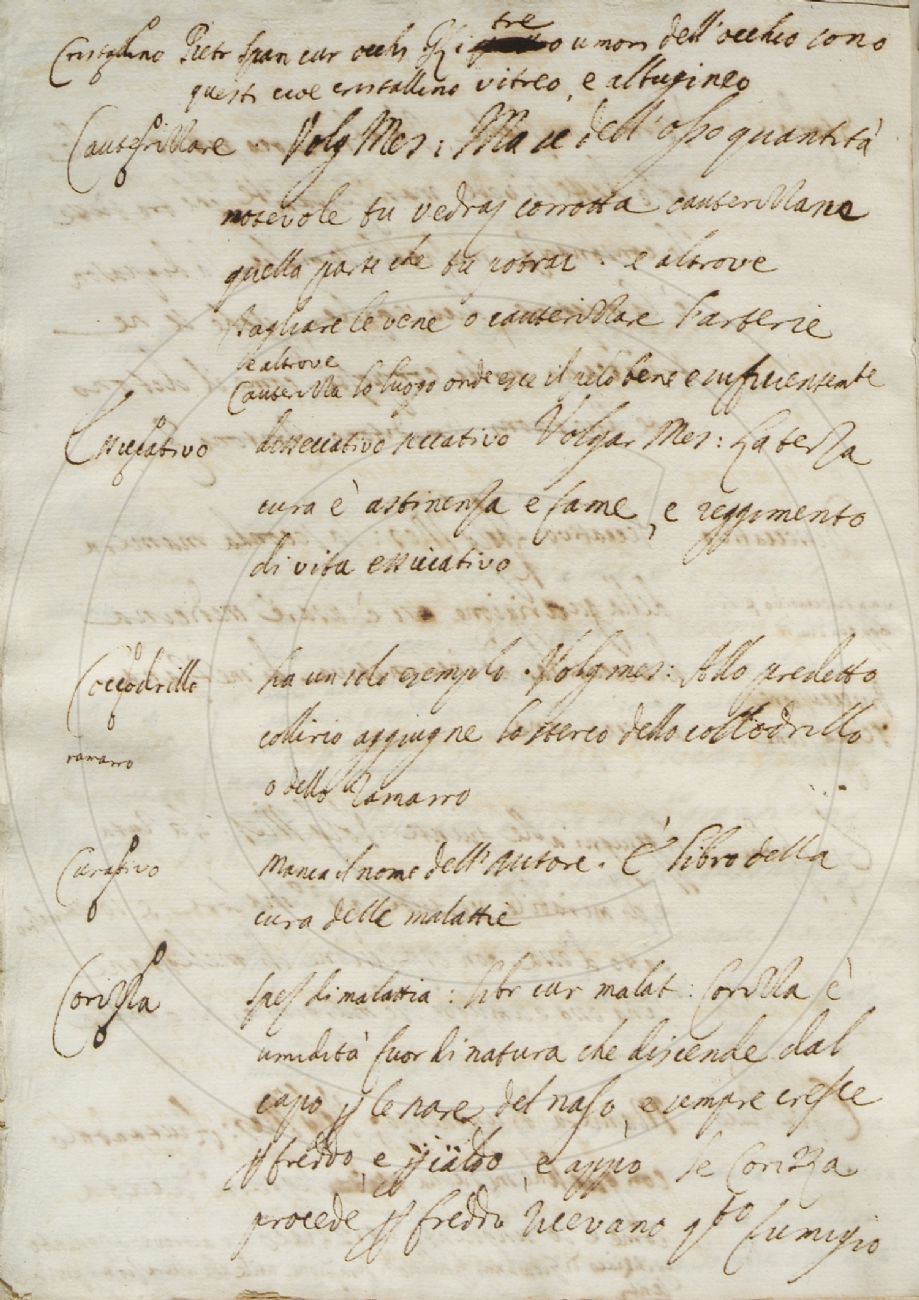 Cristallino Pietr span cur occh Gli tre umori dell'occhio sono
questi cioe cristallino vitreo, e albugineo
Cauterizzare Volg Mes: Ma se dell'osso quantità
notevole tu vedrai corrotta cauterizzane
quella parte che tu potrai. e altrove
tagliare le vene o cauterizzare l'arterie
e altrove
Cauterizza lo luogo onde esce il pelo bene e sufficientente
Essiccativo disseccativo seccativo Volgar Mes: La terza
cura è astinenza e fame, e reggimento
di vita essiccativo
Coccodrillo ha un solo esempio. Volg mes: Allo predetto
collirio aggiugne lo sterco dello collodrillo
ramarro
o dello ramarro
Curativo Manca il nome dell'Autore. È libro della
cura delle malattie
Corizza spez di malattia: libr cur malat: Corizza è
umidità fuor di natura che discende dal
capo p le nare del naso, e sempre cresce
p freddo, e p caldo, e appo, se Corizza
procede p freddo ricevano qto fumigio